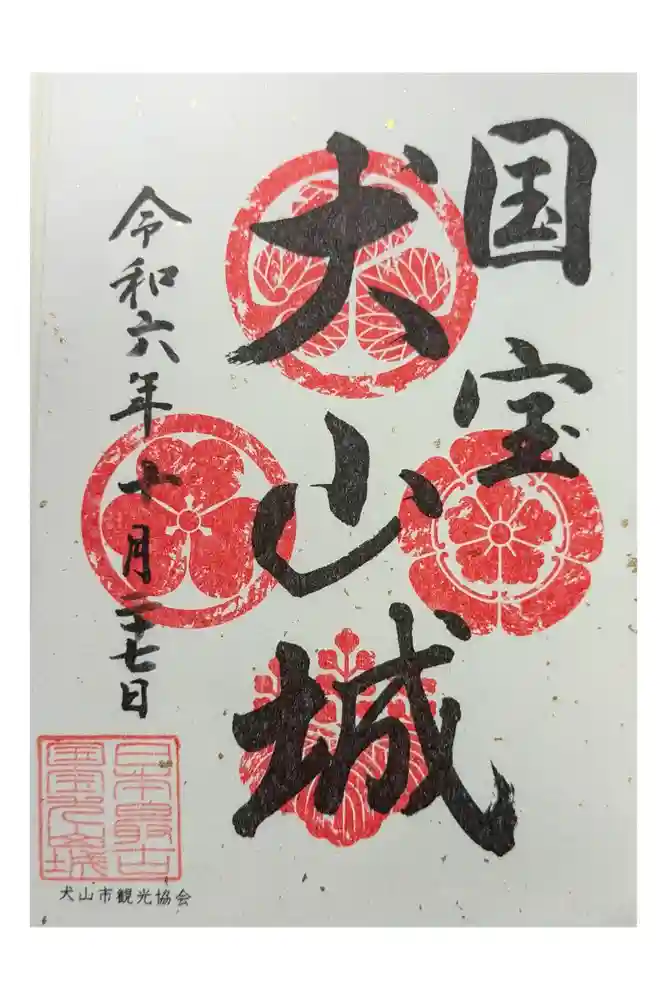 国宝
犬山城
令和六年十月二十七日
日本最古
国宝犬山城
犬山市観光協会